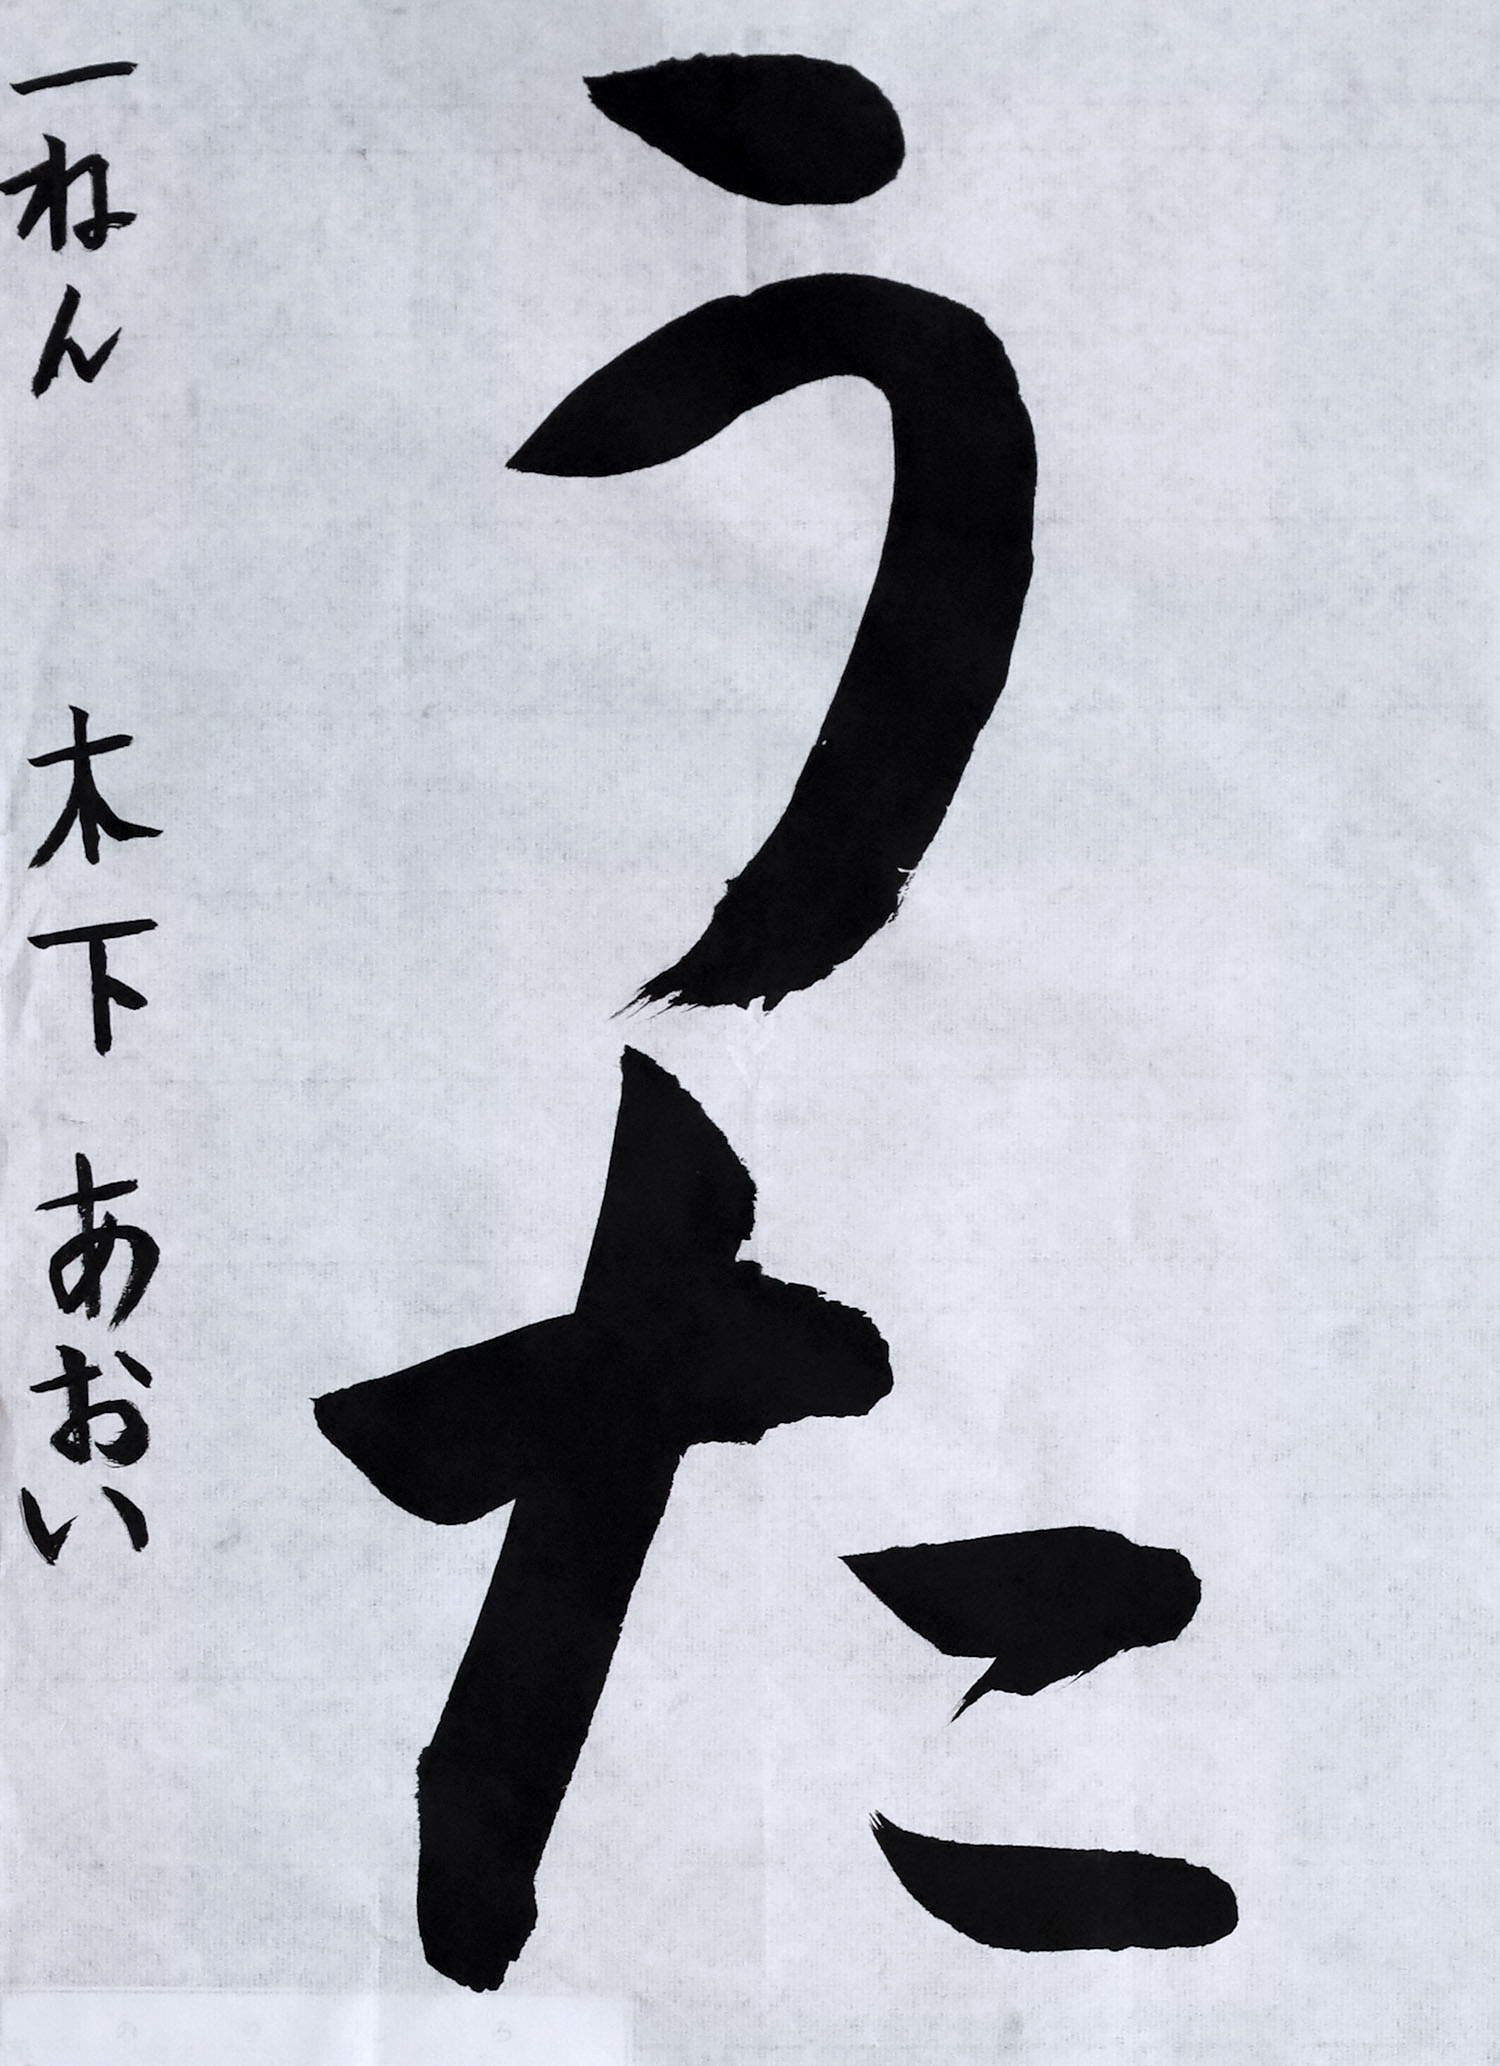 うた
一ねん 木下 あおい